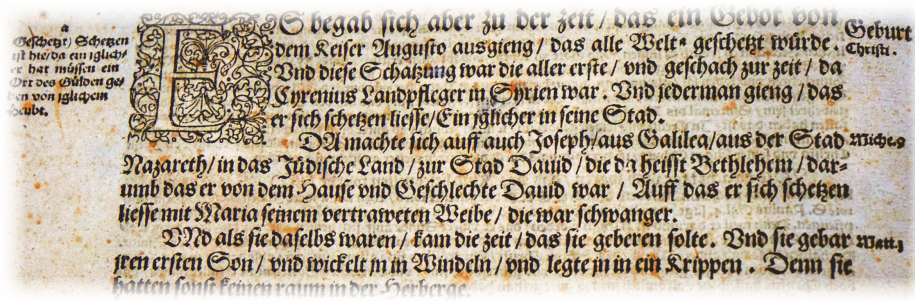 a
(Geschetzt) Schetzen
ist hie/da ein jglich/
er hat müssen ein
Ort des Gülden ge/
ben von jglichem
Heubt.
ES begab sich aber zu der zeit / das ein Gebot von
dem Keiser Augusto ausgieng / das alle Welt a geschetzt würde.
Vnd diese Schatzung war die aller erste / vnd geschach zur zeit / da
Cyrenius Landpfleger in Syrien war. Vnd jederman gieng / das
er sich schetzen liesse/Ein jglicher in seine Stad.
DA machte sich auff auch Joseph/aus Galilea/aus der Stad
Nazareth/ in das Jüdische Land / zur Stad Dauid / die da heisst Bethlehem / dar-
umb das er von dem Hause vnd Geschlechte Dauid war / Auff das er sich schetzen
liesse mit Maria seinem vertraweten Weibe / die war schwanger.
VNd als sie daselbs waren / kam die zeit / das sie geberen solte. Vnd sie gebar
jren ersten Son / vnd wickelt jn in Windeln / vnd legte jn in ein Krippen. Denn sie
hatten sonst keinen raum in der Herberge.
Geburt
Christi.
Miche.5
Matt.1